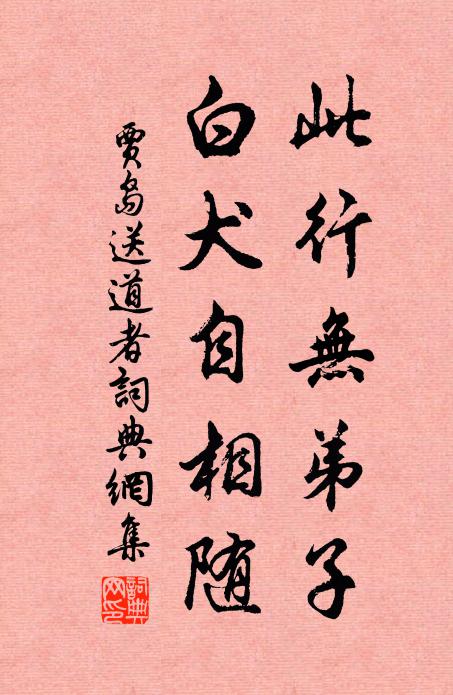 此行無弟子
白犬自相随
賈島送道者詞典網集
詞典網印